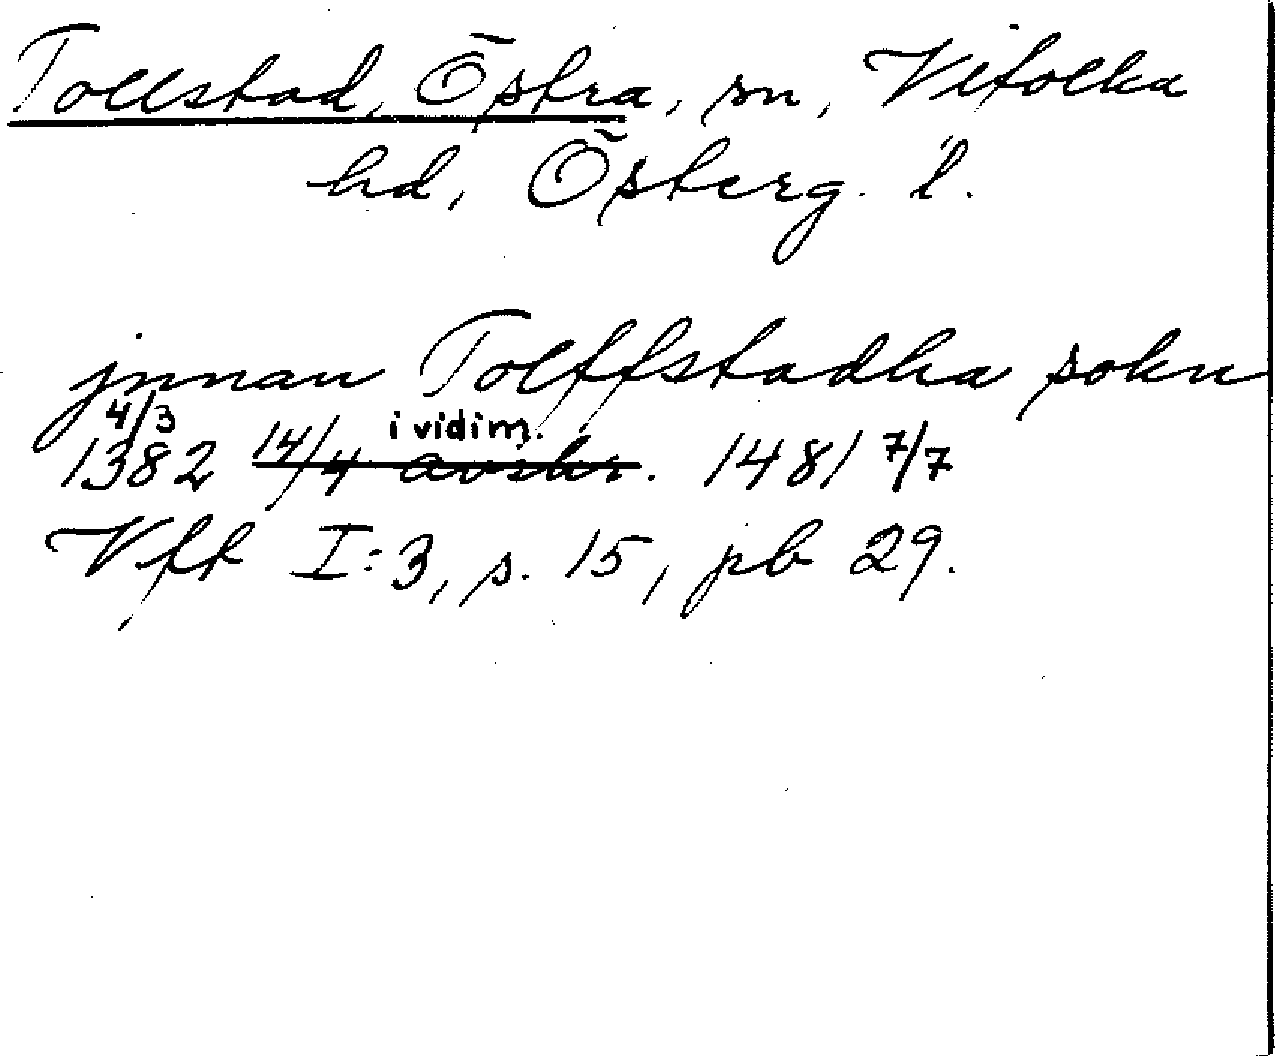 Tollstad, Östra, sn, Vifolka
hd, Österg. l.
jnnan Tolffstadha sokn
4/3 i vidim.
1382 14/4 avskr. 1481 7/7
Vff I:3, s. 15, pb 29.